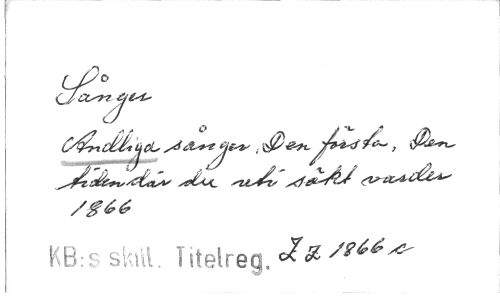 Sånger
Andliga sånger. Den första, Den
tiden där du uti säkt varder
1866
KB:s skill. Titelreg. ZZ 1866 c